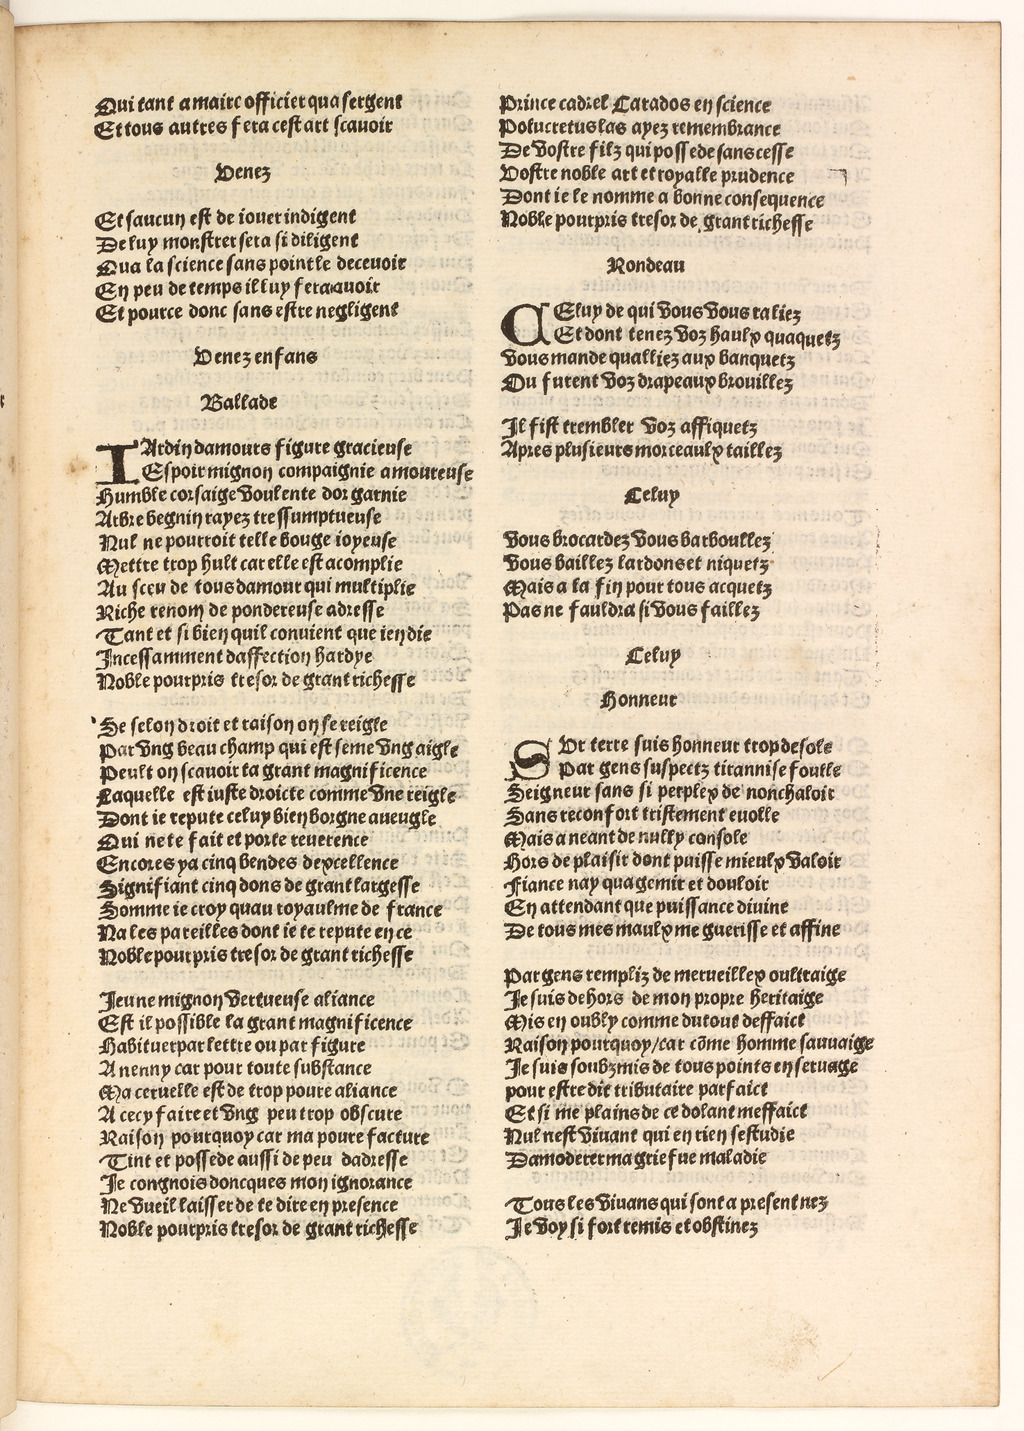 Qui tant a maire officier qua sergent
Et tous autres fera cest art scauoir
Venez
Et saucun est de iouer indigent
De luy monstrer sera si diligent
Qua la science sans point le deceuoir
En peu de temps il luy fera auoir
Et pource donc sans estre negligent
Venez enfans
Ballade
IArdin damours figure gracieuse
Espoir mignon compaignie amoureuse
Humble corsaige voulente dor garnie
Arbre begnin rayez tressumptueuse
Nul ne pourroit telle bouge ioyeuse
Mettre trop hult car elle est acomplie
Au sceu de tous damour qui multiplie
Riche renom de pondereuse adresse
Tant et si bien quil conuient que ien die
Incessamment daffection hardye
Noble pourpris tresor de grant richesse
Se selon droit et raison on se reigle
Par vng beau champ qui est seme vng aigle
Peult on scauoir ta grant magnificence
Laquelle est iuste droicte comme vne reigle
Dont ie repute celuy bien borgne aueugle
Qui ne te fait et porte reuerence
Encores ya cinq bendes dexcellence
Signifiant cinq dons de grant largesse
Somme ie croy quau royaulme de france
Na les pareilles dont ie te repute en ce
Noble pourpris tresor de grant richesse
Jeune mignon vertueuse aliance
Est il possible ta grant magnificence
Habituer par lettre ou par figure
A nenny car pour toute substance
Ma ceruelle est de trop poure aliance
A cecy faire et vng peu trop obscure
Raison pourquoy car ma poure facture
Tint et possede aussi de peu dadresse
Je congnois doncques mon ignorance
Ne vueil laisser de te dire en presence
Noble pourpris tresor de grant richesse
Prince cadrel Carados en science
Polucretus las ayez remembrance
De vostre filz qui possede sans cesse
Vostre noble art et royalle prudence
Dont ie le nomme a bonne consequence
Noble pourpris tresor de grant richesse
Rondeau
CEluy de qui vous vous raliez
Et dont tenez voz haulx quaquetz
Vous mande qualliez aux banquetz
Ou furent voz drapeaux brouillez
Il fist trembler voz affiquetz
Apres plusieurs morceaulx taillez
Celuy
Vous brocardez vous barboullez
Vous baillez lardons et niquetz
Mais a la fin pour tous acquetz
Pas ne fauldra si vous faillez
Celuy
Honneur
SVr terre suis honneur trop desole
Par gens suspectz tirannise foulle
Seigneur sans si perplex de nonchaloir
Sans reconfort tristement euolle
Mais a neant de nully console
Hors de plaisir dont puisse mieulx valoir
Fiance nay qua gemir et douloir
En attendant que puissance diuine
De tous mes maulx me guerisse et affine
Par gens rempliz de merueillex oultraige
Je suis dehors de mon propre heritaige
Mis en oubly comme du tout deffaict
Raison pourquoy/car cõme homme sauuaige
Je suis soubzmis de tous points en seruage
pour estre dit tributaire parfaict
Et si me plains de ce dolant meffaict
Nul nest viuant qui en rien sestudie
Damoderer ma griefue maladie
Tous les viuans qui sont a present nez
Je voy si fort remis et obstinez